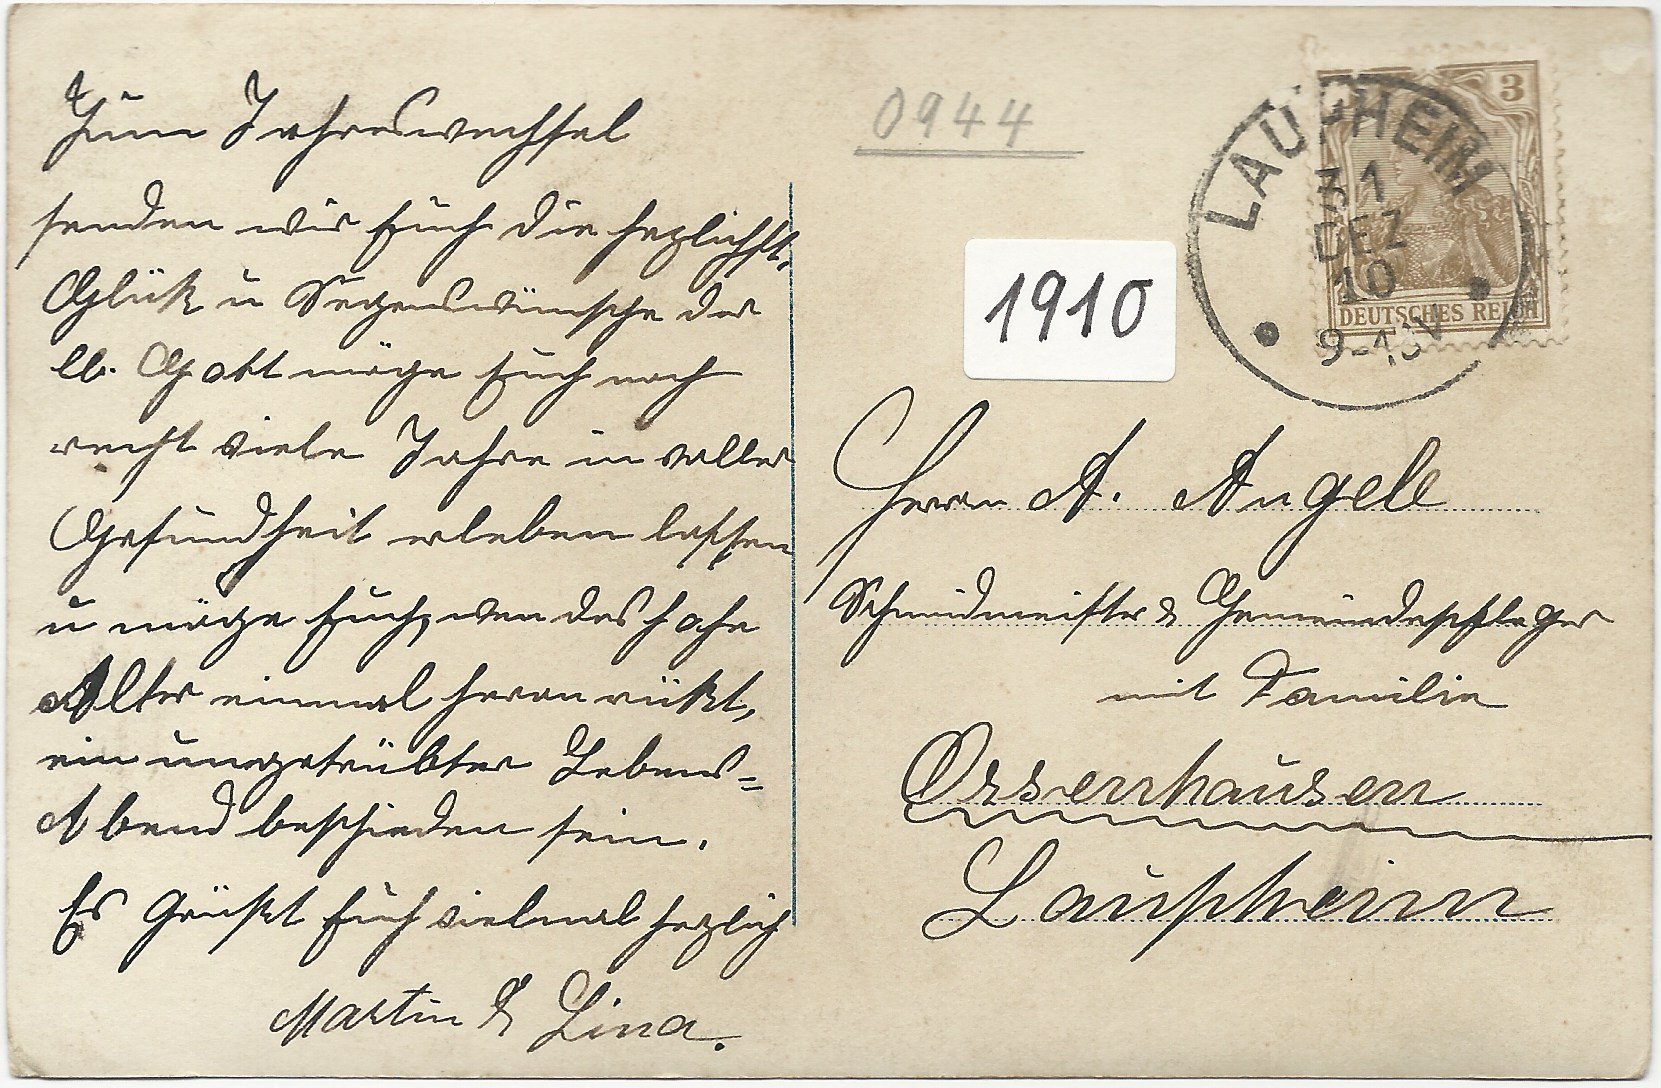 Zum Jahreswechsel
senden wir Euch die hezlichst.
Glück u Segenswünsche der
lb. Gott möge Euch noch
recht viele Jahre in voller
Gesundheit erleben lassen
u möge Euch, wen das hohe
Alter einmal heran rükt,
ein ungetrübter Lebens=
Abend beschieden sein.
Es Grüßt Euch vielmal hezlich
Martin & Lina.
0944
1910
LAUPHEIM
31
DEZ
10
9-10V
3
DEUTSCHES REICH
Herrn A. Angele
Schmidmeister & Gemeindepfleger
mit Familie
Orsenhausen
Laupheim